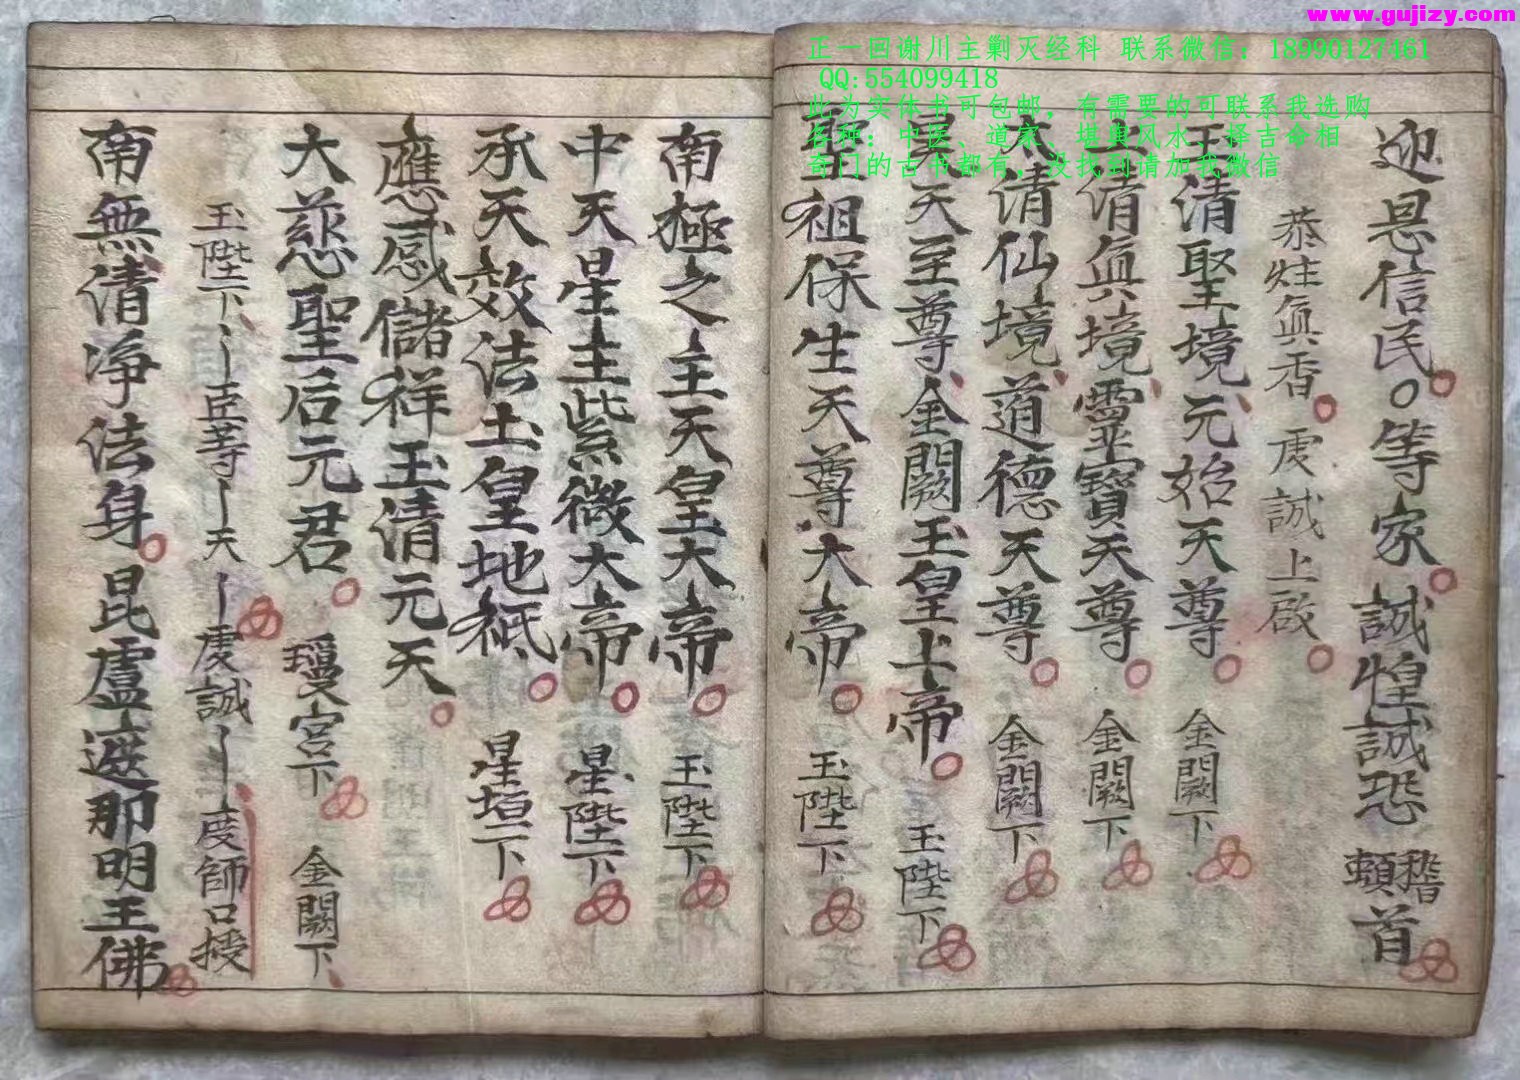 www.gujizy.com
正一回谢川主剿灭经科 联系微信：18990127461
QQ:554099418
此为实体书可包邮，有需要的可联系我选购
各种：中医、道家、堪舆风水、择吉命相
奇门的古书都有，没找到请加我微信
迎恩信民○等家誠惶誠恐稽首頓首
恭炷眞香虔誠上啟
玉清聖境元始天尊 金闕下
上清眞境靈寶天尊 金闕下
太清仙境道德天尊 金闕下
昊天至尊金闕玉皇上帝 玉陛下
聖祖保生天尊大帝 玉陛下
南極之主天皇大帝 玉陛下
中天星主紫微大帝 星陛下
承天效法土皇地衹 星垣下
應感儲祥玉清元天
大慈聖后元君 瓊宮下 金闕下
玉陛下 臣等 天 虔誠 度師口授
南無清净法身昆盧遮那明王佛